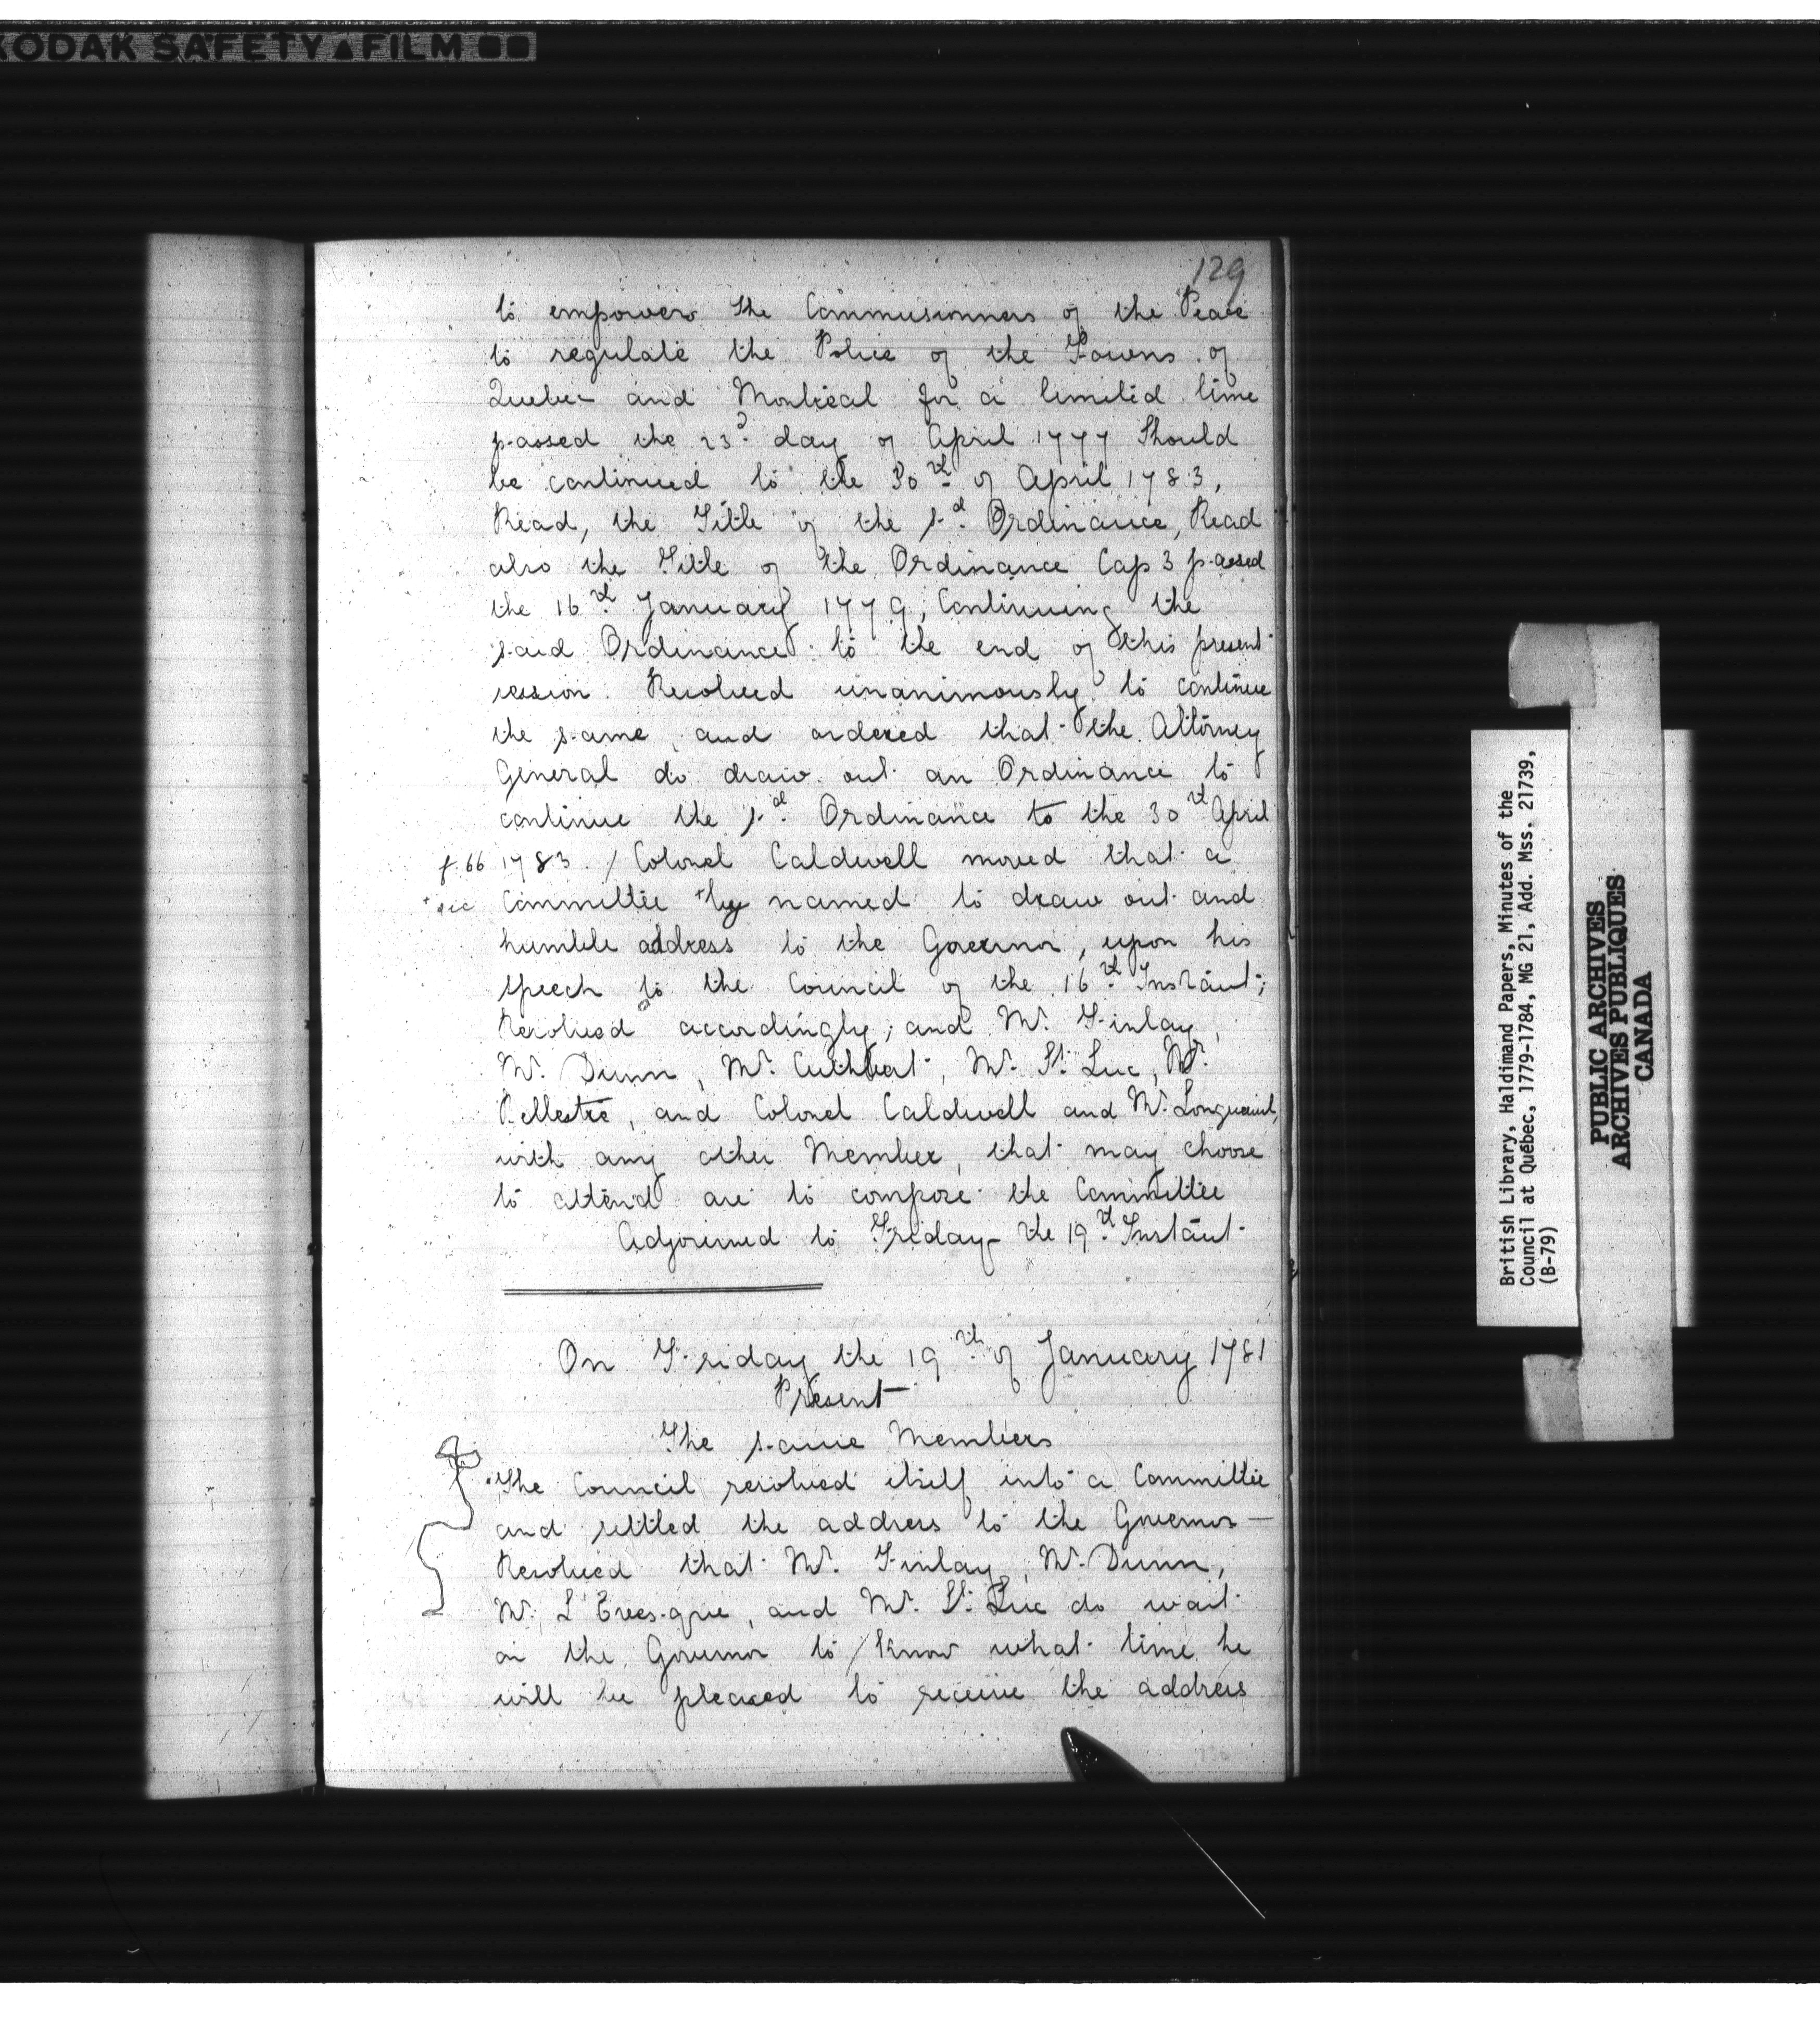 KODAK SAFETY ▲ FILM
129
to empower the Commissionners of the Peace
to regulate the Police of the Towns of
Quebec and Montreal for a limited time
passed the 23d day of April 1777 Should
be continued to the 30th of April 1783,
Read, the Title of the sd Ordinance, Read
also the Title of the Ordinance Cap 3 passed
the 16th January 1779, Continuing the
said Ordinance to the end of this present
session. Resolved unanimously to continue
the same, and ordered that the Attorney
General do draw out an Ordinance to
continue the sd Ordinance to the 30th April
f. 66 1783. / Colonel Caldwell moved that a
+ sic Committee + by named to draw out and
humble address to the Governor, upon his
speech to the Council of the 16th Instant;
Resolved accordingly; and Mr. Finlay,
Mr. Dunn, Mr. Cuthbert, Mr. St. Luc, Mr.
Bellestre, and Colonel Caldwell and Mr. Longueuil,
with any other Member, that may choose
to attend are to compose the Committee
Adjourned to Friday the 19th Instant
On Friday the 19th of January 1781
Present
The same Members
The Council resolved itself into a Committee
and settled the address to the Governor —
Resolved that Mr. Finlay, Mr. Dunn,
Mr. L'Evesque, and Mr. St. Luc do wait
on the Governor to / know what time he
will be pleased to receive the address
British Library, Haldimand Papers, Minutes of the
Council at Québec, 1779-1784, MG 21, Add. Mss. 21739,
(B-79)
PUBLIC ARCHIVES
ARCHIVES PUBLIQUES
CANADA